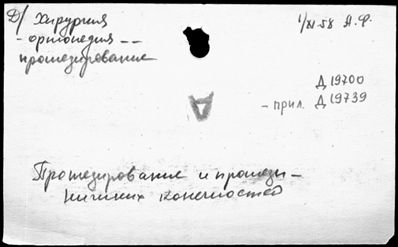 Д/ Хирургия
1/XI-58 Я.Ф.
- ортопедия --
протезирование
Д 19700
- прил. Д 19739
Протезирование и протезы -
конечностей